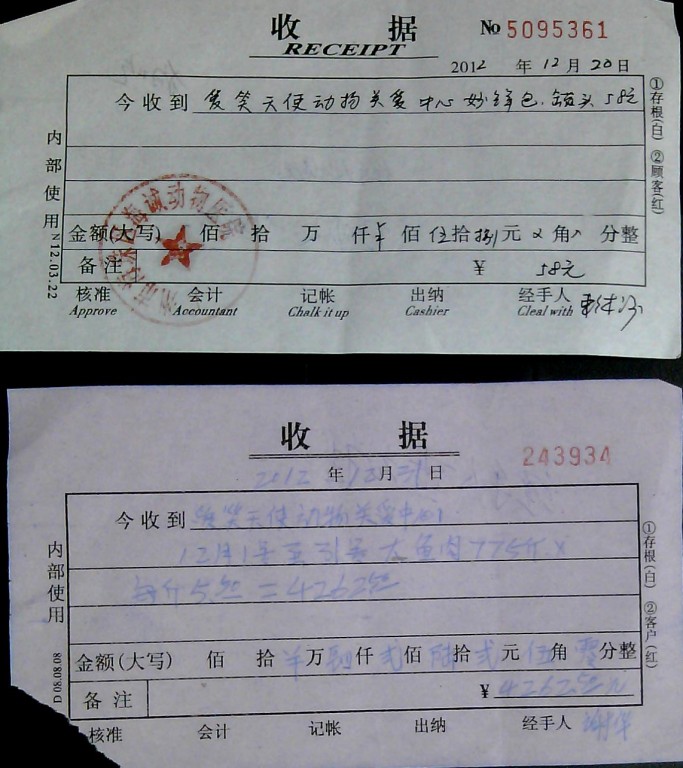 收 据
RECEIPT
No 5095361
2012 年 12 月 20 日
今收到 爱笑天使动物关爱中心 妙鲜包.罐头 58元
金额(大写) 佰 拾 万 仟 佰 伍拾 捌元 角 分整
备 注 ¥ 58元
核准 会计 记帐 出纳 经手人
Approve Accountant Chalk it up Cashier Cleal with
内部使用
N12.03.22
①存根(白) ②顾客(红)
诚动物医院
收 据
243934
2012 年 12 月 31 日
今收到 爱笑天使动物关爱中心
12月1号至31号 大鱼肉775斤 x
每斤5.5元 = 4262.5元
金额(大写) 佰 拾 万 肆仟 贰佰 陆拾 贰元 伍角 零分整
备 注 ¥ 4262.5元
核准 会计 记帐 出纳 经手人 谢华
内部使用
08.08.08 D
①存根(白) ②客户(红)